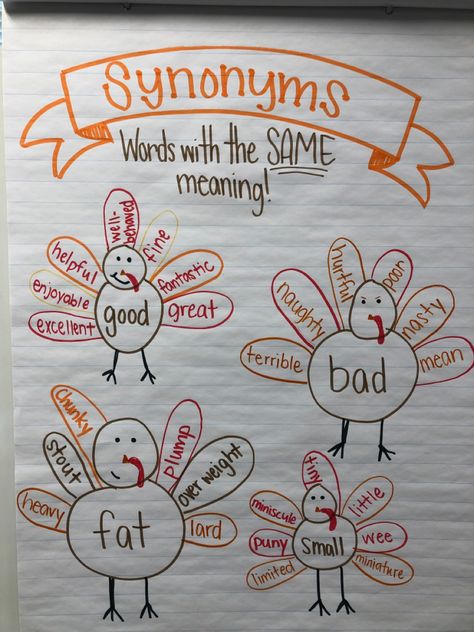 Synonyms
Words with the SAME
meaning!
well-
behaved
fine
helpful
fantastic
enjoyable
great
excellent
good
hurtful
poor
naughty
nasty
terrible
mean
bad
chunky
plump
stout
over weight
heavy
lard
fat
tiny
little
miniscule
wee
puny
miniature
limited
small